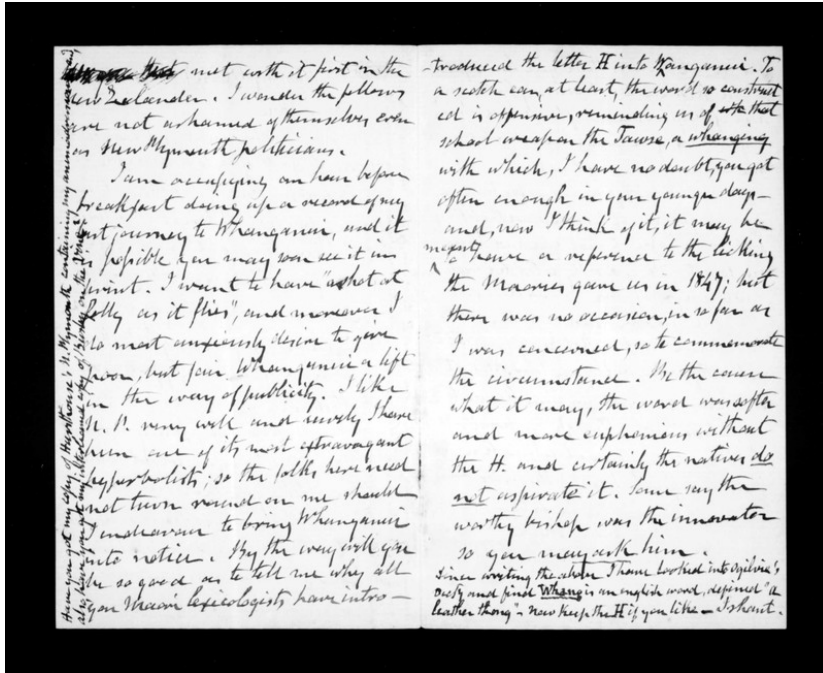 met with it first in the
New Zealander. I wonder the fellows
are not ashamed of themselves even
as New Plymouth politicians.
I am occupying an hour before
breakfast doing up a record of my
last journey to Whanganui, and it
is possible you may soon see it in
print. I want to have "a shot at
folly as it flies", and moreover I
do most anxiously desire to give
poor, but fair Whanganui a lift
in the way of publicity. I like
N. P. very well and surely I have
been one of its most extravagant
hyperbolists; so the folks here need
not turn round on me should
I endeavour to bring Whanganui
into notice. By the way will you
be so good as to tell me why all
you Maori lexicologists have intro-
Have you got my copy of Hursthouse's N. Plymouth containing my animadversions,
also have you got my
copy of
on the
-troduced the letter H into Wanganui. To
h
a scotch ear, at least, the word so construct
ed is offensive, reminding us of that
school weapon the Tawse, a whanging
with which, I have no doubt, you got
often enough in your younger days—
and, now I think of it, it may be
meant
to have a reference to the licking
the Maories gave us in 1847; but
there was no occasion, in so far as
I was concerned, so to commemorate
the circumstance. Be the cause
what it may, the word was softer
and more euphonious without
the H. and certainly the natives do
not aspirate it. Some say the
worthy bishop was the innovator
so you may ask him.
Since writing the above I have looked into Ogilvie's
Dicty and find Whang is an english word, defined "a
leather thong" - Now keep the H if you like — I shant.